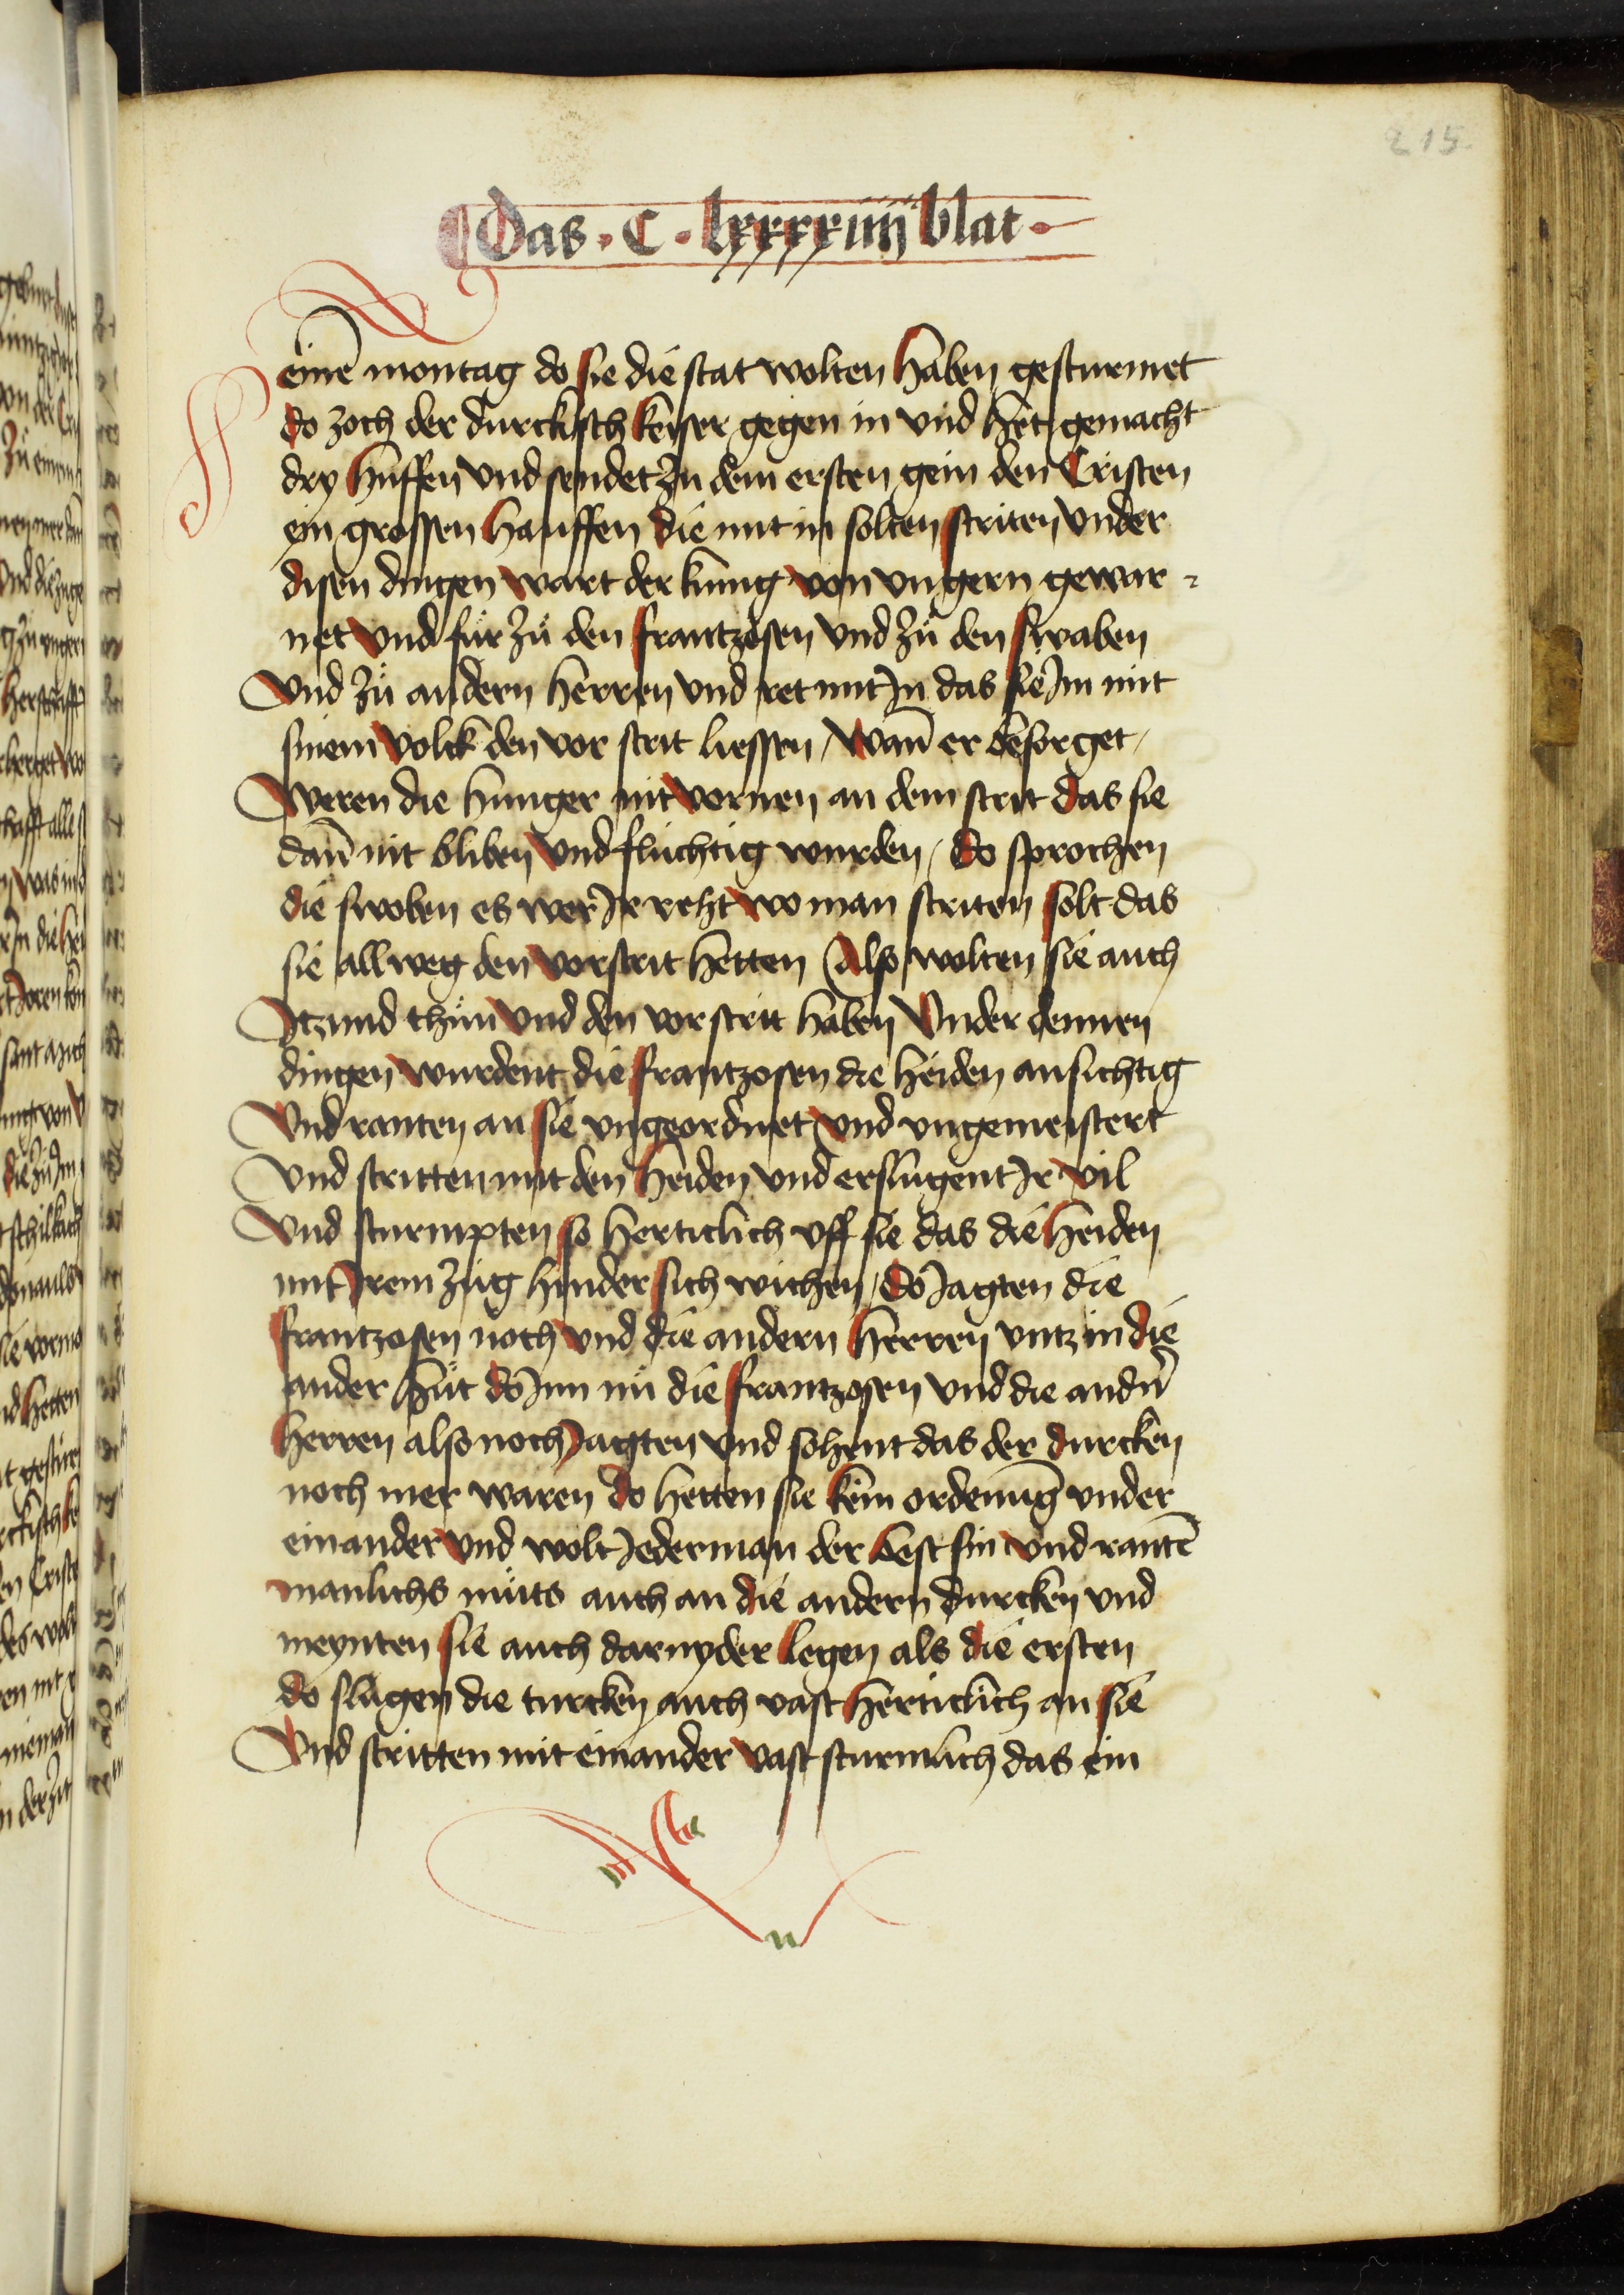 215
Das · C · lxxxxiiij blat ·
einē montag do sie die stat wolten haben gesturmet
do zoch der durckisch keiser gegen in vnd het gemacht
dry huffen vnd sendet zu dem ersten gein den Cristen
ein grossen hauffen die mit in solten striten vnder
disen dingen wart der kunig von vngern gewar-
net vnd fuͦr zuͦ den frantzosen vnd zuͦ den swaben
Vnd zuͦ andern herren vnd ret mit In das sie Im mit
sinem volck den vor strit liessen / wañ er besorget /
Weren die hunger nit vornen an dem strit das sie
dañ nit bliben vnd fluchtig wurden / do sprochen
die swoben es wer Ir reht wo man striten solt das
sie allweg den vorstrit hetten Also wolten sie auch
Itzund thuͦn vnd den vorstrit haben Vnder dennen
dingen wurdent die frantzosen die heiden ansichtig
Vnd ranten an sie vngeordnet vnd vngemeistert
Vnd stritten mit den heiden vnd erslugent Ir vil
Vnd sturmpten so herticlich vff sie das die heiden
mit Irem zug hinder sich wichen / do Iagten die
frantzosen noch vnd die andern herren vntz in die
ander huͦt do Inn nuͦ die frantzosen vnd die andn̄
herren also noch Iagten vnd sohent das der durcken
noch mer waren do hetten sie kein ordenūg vnder
einander vnd wolt Iederman der best sin vnd rantē
manlichs muͦts auch an die andern durcken vnd
meynten sie auch darnyder legen als die ersten
do slugen die turcken auch vast herticlich an sie
Vnd stritten mit einander vast sturmlich das ein